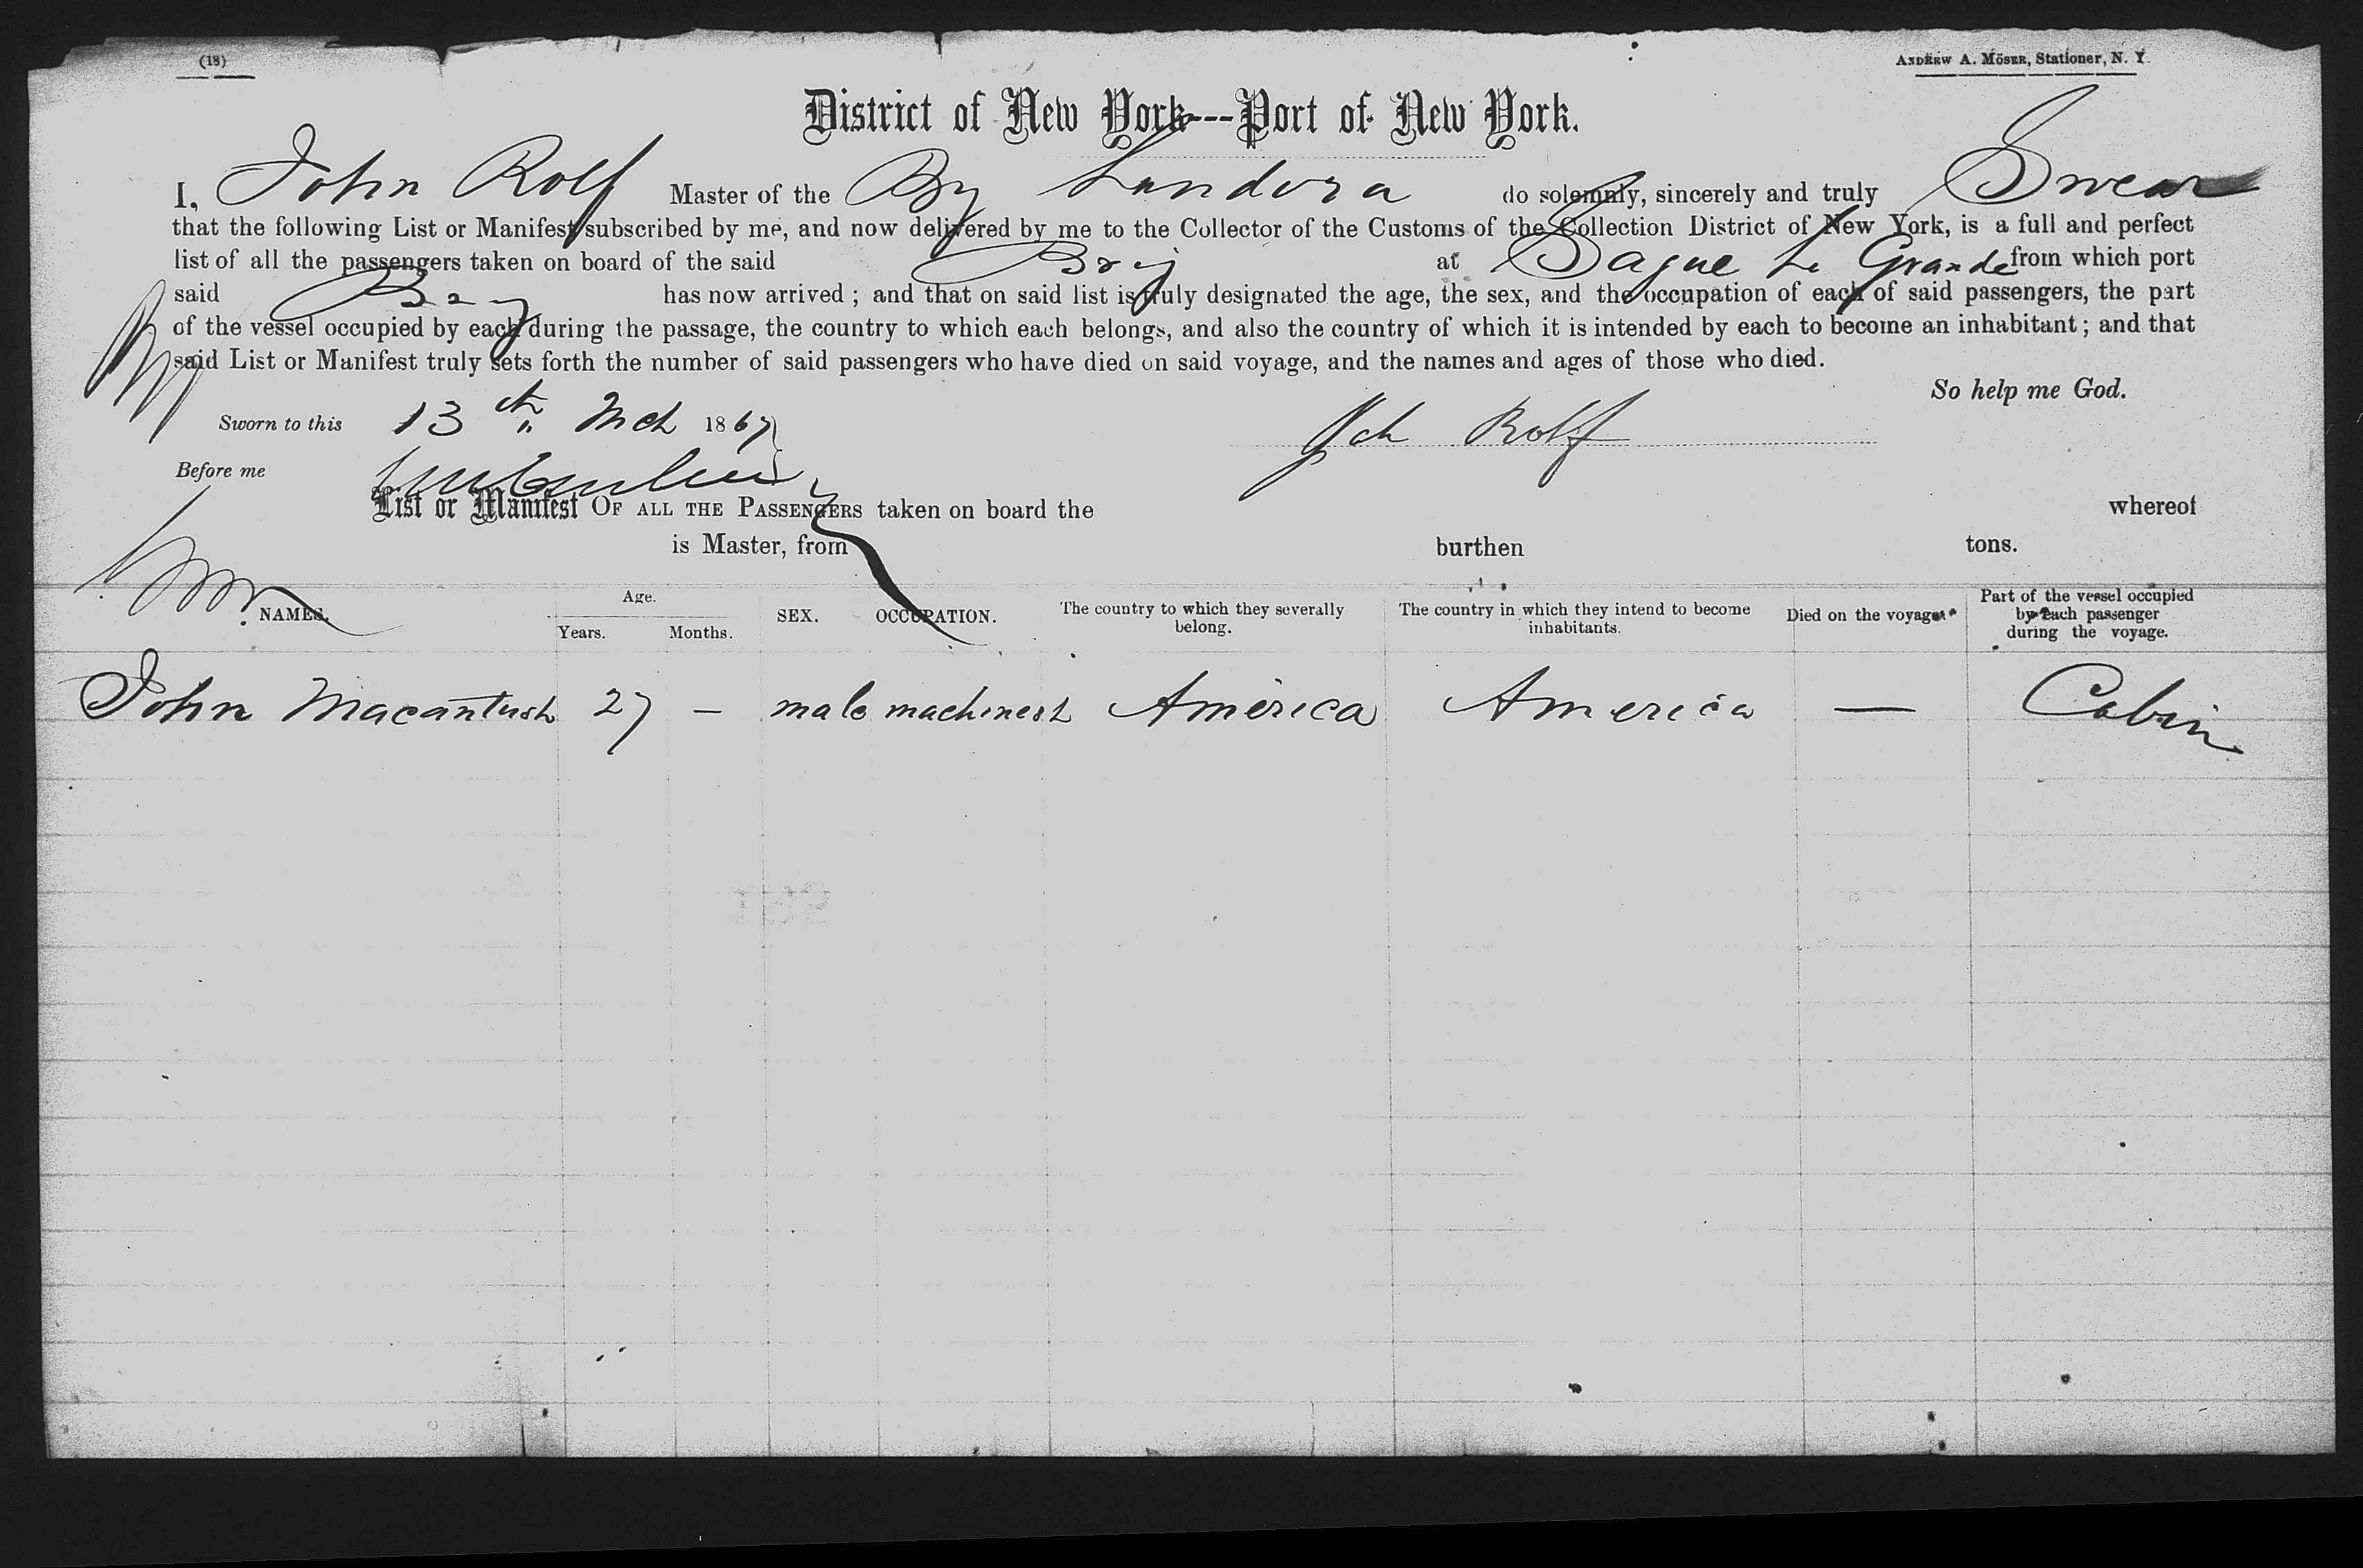 (18)
ANDREW A. MÖSER, Stationer, N. Y.
District of New York---Port of New York.
I, John Rolf Master of the Bg Landora do solemnly, sincerely and truly Swear
that the following List or Manifest subscribed by me, and now delivered by me to the Collector of the Customs of the Collection District of New York, is a full and perfect
list of all the passengers taken on board of the said Brig at Sague La Grande from which port
said Brig has now arrived ; and that on said list is truly designated the age, the sex, and the occupation of each of said passengers, the part
of the vessel occupied by each during the passage, the country to which each belongs, and also the country of which it is intended by each to become an inhabitant ; and that
said List or Manifest truly sets forth the number of said passengers who have died on said voyage, and the names and ages of those who died.
So help me God.
Sworn to this 13th Mch 1867
Joh Rolf
Before me
List or Manifest OF ALL THE PASSENGERS taken on board the whereof
is Master, from burthen tons.
NAMES. Age. Years. Months. SEX. OCCUPATION. The country to which they severally belong. The country in which they intend to become inhabitants. Died on the voyage. Part of the vessel occupied by each passenger during the voyage.
John Macantush 27 — male machinest America America — Cabin